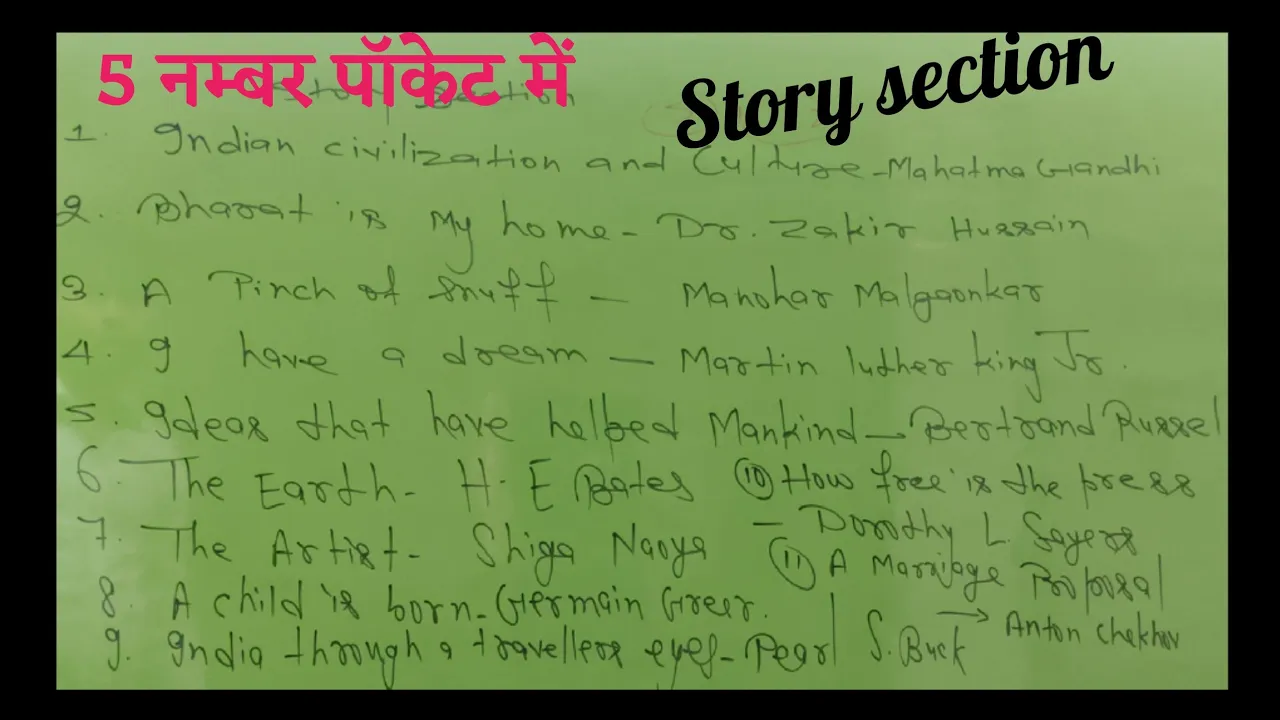 5 नम्बर पॉकेट में
Story section
Story Section
1. Indian civilization and Culture - Mahatma Gandhi
2. Bharat is My home - Dr. Zakir Hussain
3. A Pinch of snuff - Manohar Malgaonkar
4. I have a dream - Martin luther king Jr.
5. Ideas that have helped Mankind - Bertrand Russel
6. The Earth - H. E Bates ⑩ How free is the press
7. The Artist - Shiga Naoya - Dorothy L. Sayers
⑪ A Marriage Proposal
8. A child is born - Germain Greer. → Anton Chekhov
9. India through a travellers eyes - Pearl S. Buck